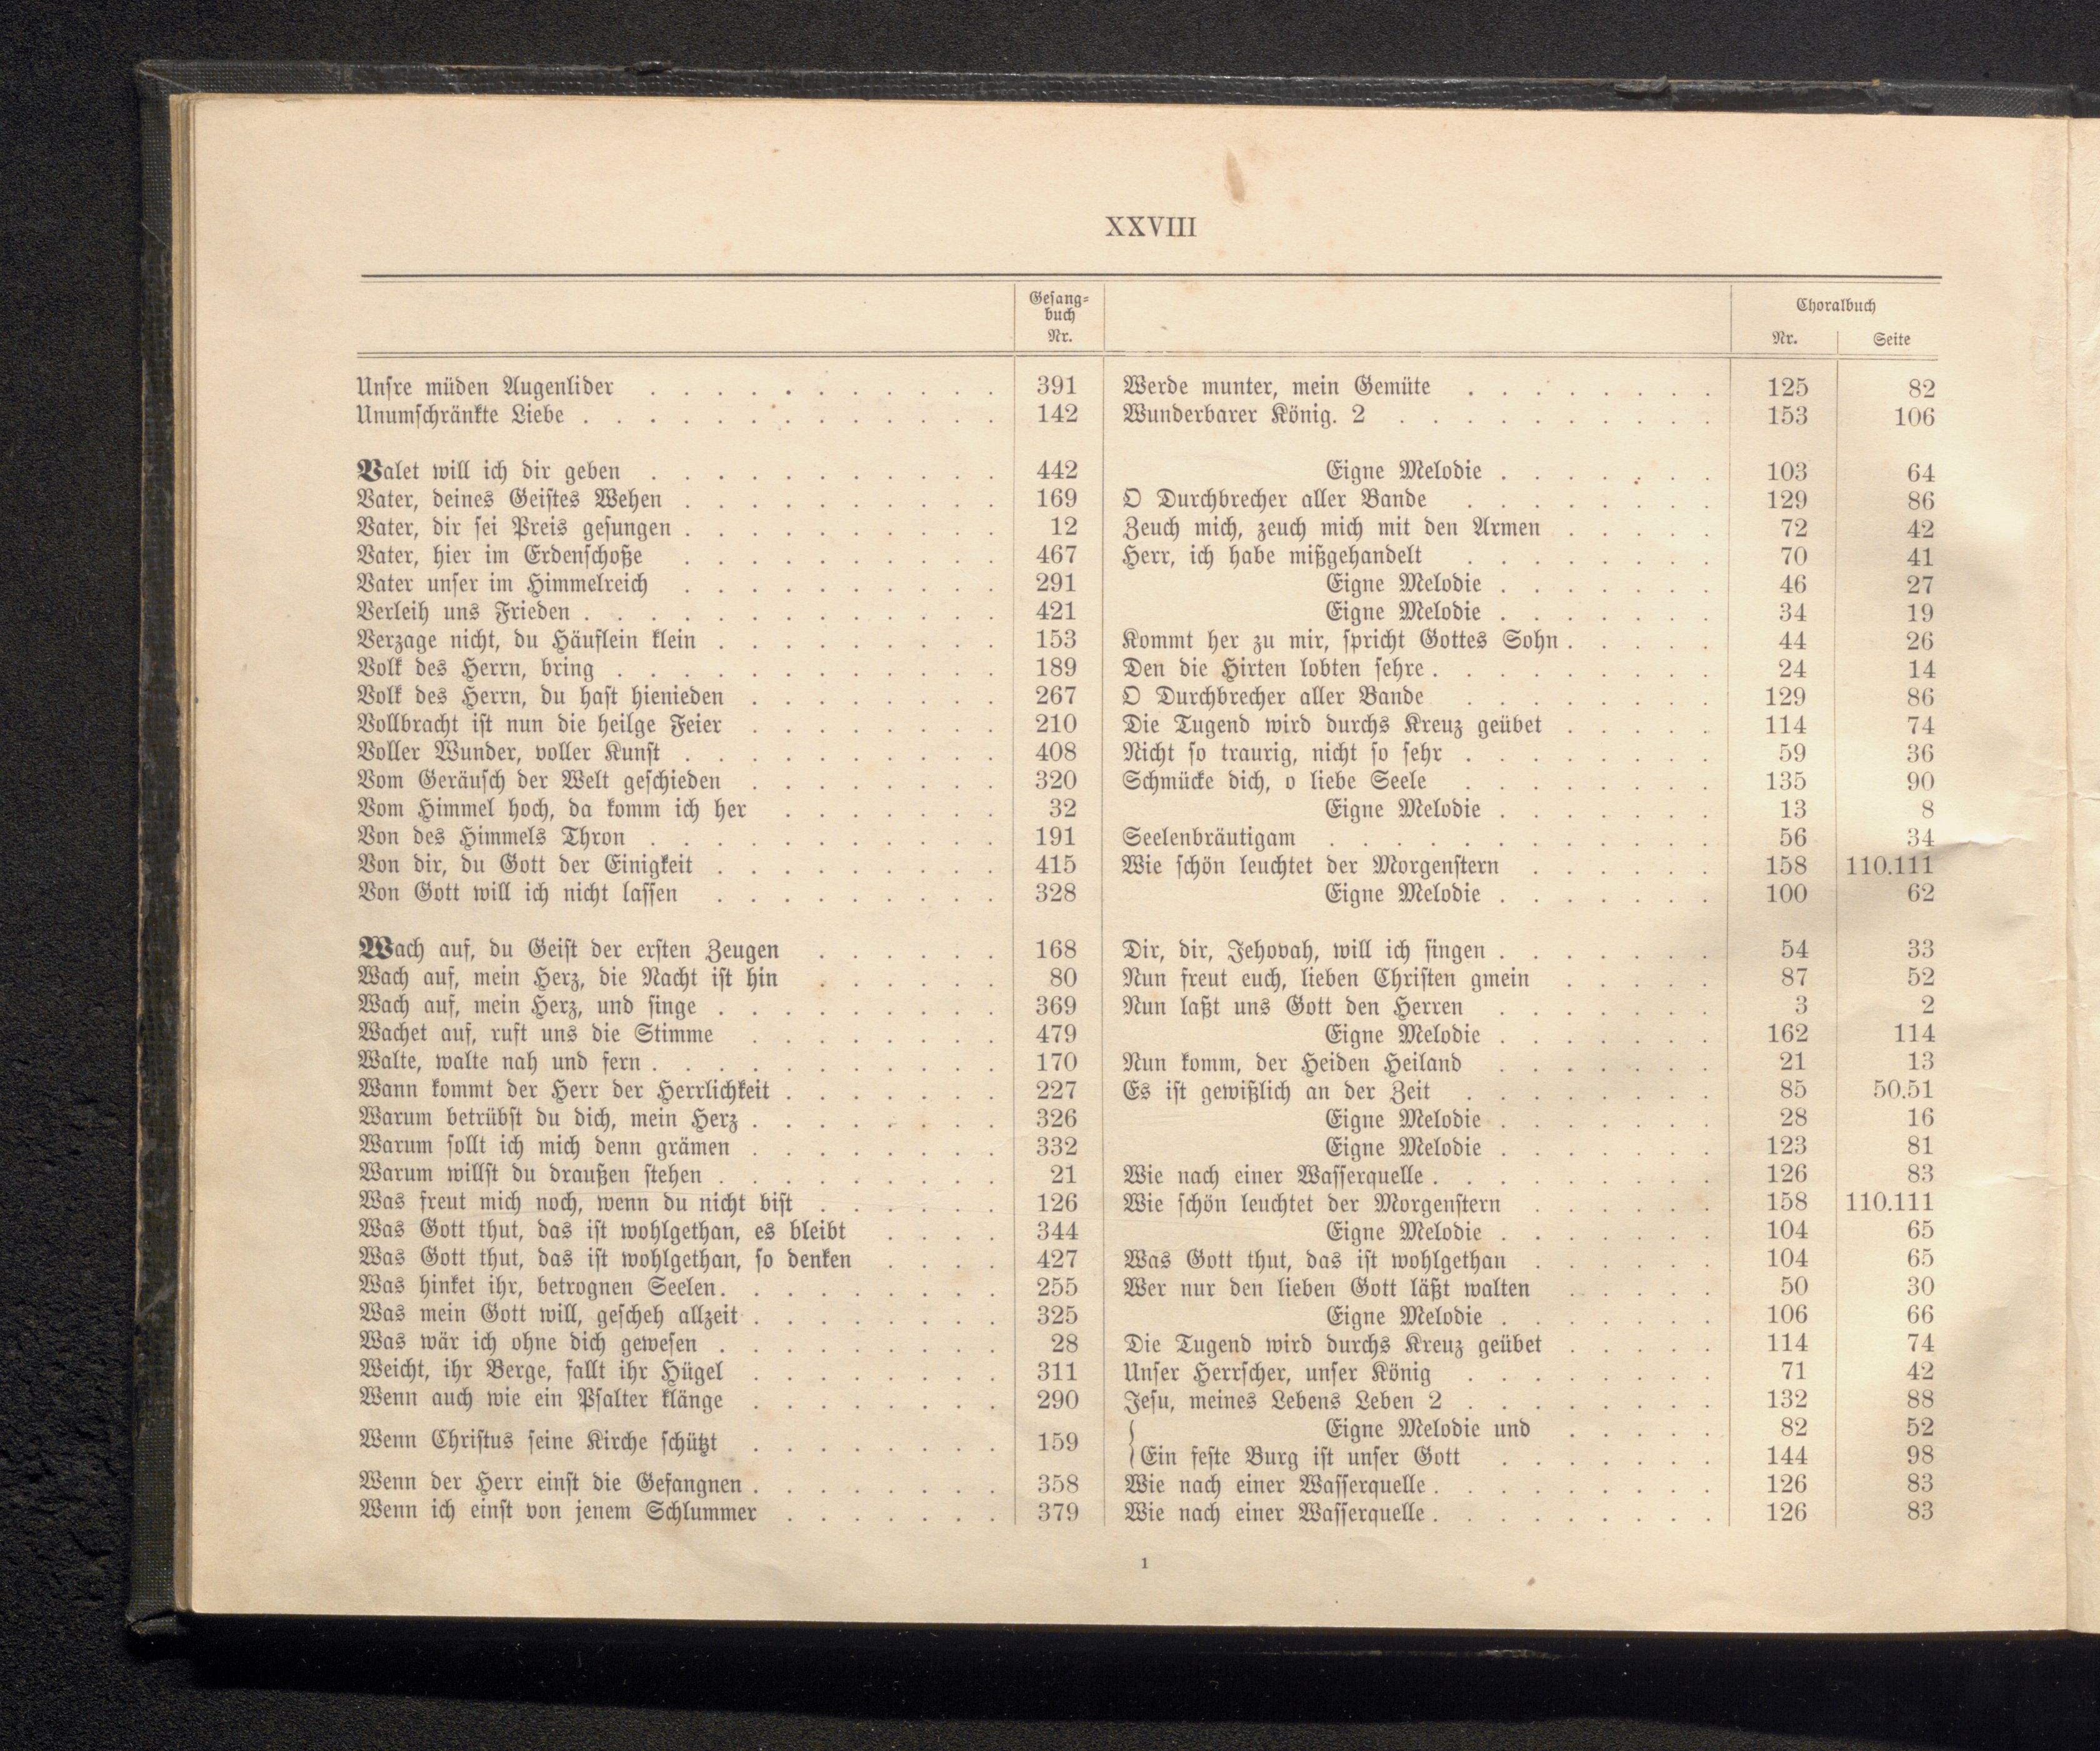 XXVIII
Gesang=
buch
Nr.
Choralbuch
Nr. Seite
Unsre müden Augenlider 391 Werde munter, mein Gemüte 125 82
Unumschränkte Liebe 142 Wunderbarer König. 2 153 106
Valet will ich dir geben 442 Eigne Melodie 103 64
Vater, deines Geistes Wehen 169 O Durchbrecher aller Bande 129 86
Vater, dir sei Preis gesungen 12 Zeuch mich, zeuch mich mit den Armen 72 42
Vater, hier im Erdenschoße 467 Herr, ich habe mißgehandelt 70 41
Vater unser im Himmelreich 291 Eigne Melodie 46 27
Verleih uns Frieden 421 Eigne Melodie 34 19
Verzage nicht, du Häuflein klein 153 Kommt her zu mir, spricht Gottes Sohn 44 26
Volk des Herrn, bring 189 Den die Hirten lobten sehre 24 14
Volk des Herrn, du hast hienieden 267 O Durchbrecher aller Bande 129 86
Vollbracht ist nun die heilge Feier 210 Die Tugend wird durchs Kreuz geübet 114 74
Voller Wunder, voller Kunst 408 Nicht so traurig, nicht so sehr 59 36
Vom Geräusch der Welt geschieden 320 Schmücke dich, o liebe Seele 135 90
Vom Himmel hoch, da komm ich her 32 Eigne Melodie 13 8
Von des Himmels Thron 191 Seelenbräutigam 56 34
Von dir, du Gott der Einigkeit 415 Wie schön leuchtet der Morgenstern 158 110.111
Von Gott will ich nicht lassen 328 Eigne Melodie 100 62
Wach auf, du Geist der ersten Zeugen 168 Dir, dir, Jehovah, will ich singen 54 33
Wach auf, mein Herz, die Nacht ist hin 80 Nun freut euch, lieben Christen gmein 87 52
Wach auf, mein Herz, und singe 369 Nun laßt uns Gott den Herren 3 2
Wachet auf, ruft uns die Stimme 479 Eigne Melodie 162 114
Walte, walte nah und fern 170 Nun komm, der Heiden Heiland 21 13
Wann kommt der Herr der Herrlichkeit 227 Es ist gewißlich an der Zeit 85 50.51
Warum betrübst du dich, mein Herz 326 Eigne Melodie 28 16
Warum sollt ich mich denn grämen 332 Eigne Melodie 123 81
Warum willst du draußen stehen 21 Wie nach einer Wasserquelle 126 83
Was freut mich noch, wenn du nicht bist 126 Wie schön leuchtet der Morgenstern 158 110.111
Was Gott thut, das ist wohlgethan, es bleibt 344 Eigne Melodie 104 65
Was Gott thut, das ist wohlgethan, so denken 427 Was Gott thut, das ist wohlgethan 104 65
Was hinket ihr, betrognen Seelen 255 Wer nur den lieben Gott läßt walten 50 30
Was mein Gott will, gescheh allzeit 325 Eigne Melodie 106 66
Was wär ich ohne dich gewesen 28 Die Tugend wird durchs Kreuz geübet 114 74
Weicht, ihr Berge, fallt ihr Hügel 311 Unser Herrscher, unser König 71 42
Wenn auch wie ein Psalter klänge 290 Jesu, meines Lebens Leben 2 132 88
Wenn Christus seine Kirche schützt 159 Eigne Melodie und 82 52
Ein feste Burg ist unser Gott 144 98
Wenn der Herr einst die Gefangnen 358 Wie nach einer Wasserquelle 126 83
Wenn ich einst von jenem Schlummer 379 Wie nach einer Wasserquelle 126 83
1